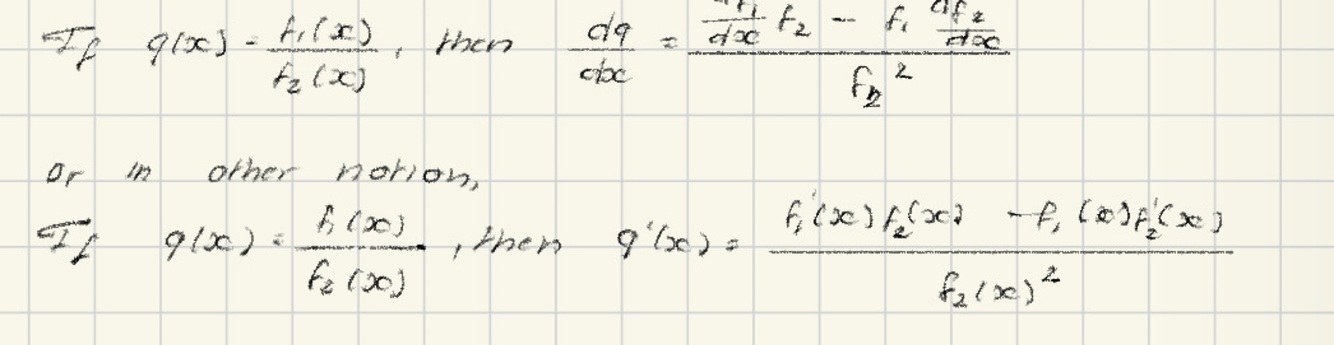 If q(x) = f₁(x) / f₂(x), then dq/dx = (df₁/dx f₂ - f₁ df₂/dx) / f₂²
or in other notion,
If q(x) = f₁(x) / f₂(x), then q'(x) = (f₁'(x) f₂(x) - f₁(x) f₂'(x)) / f₂(x)²